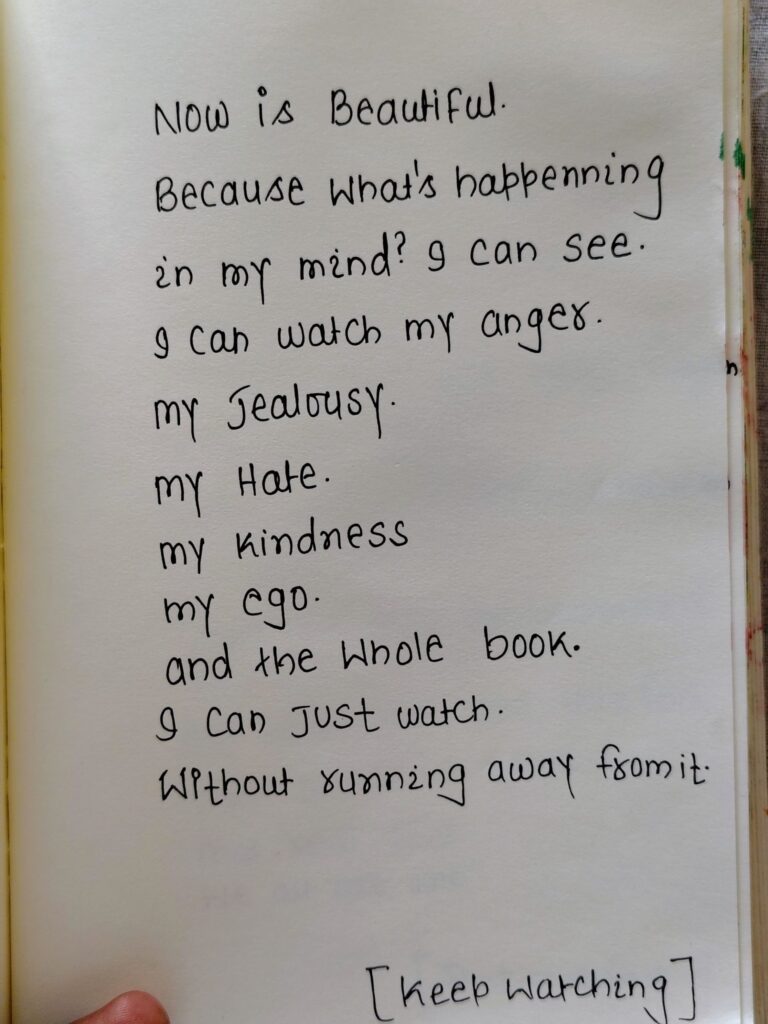 Now is Beautiful.
Because what's happenning
in my mind? I can see.
I can watch my anger.
my Jealousy.
my Hate.
my kindness
my ego.
and the whole book.
I can Just watch.
Without running away from it.
[keep watching]